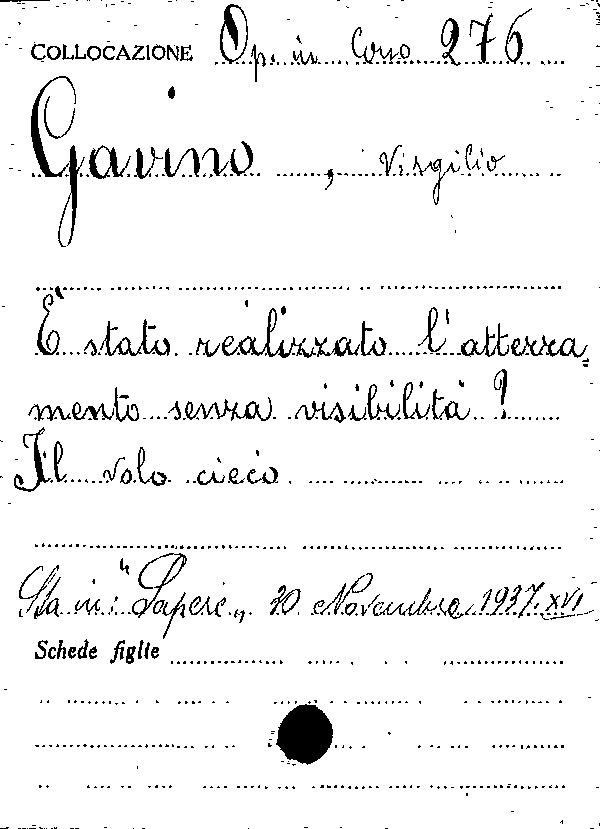 COLLOCAZIONE Op. in Corso 276
Gavino, Virgilio
È stato realizzato l'atterra=
mento senza visibilità?
Il volo cieco
Sta in: "Sapere„ 30 Novembre 1937. XVI
Schede figlie